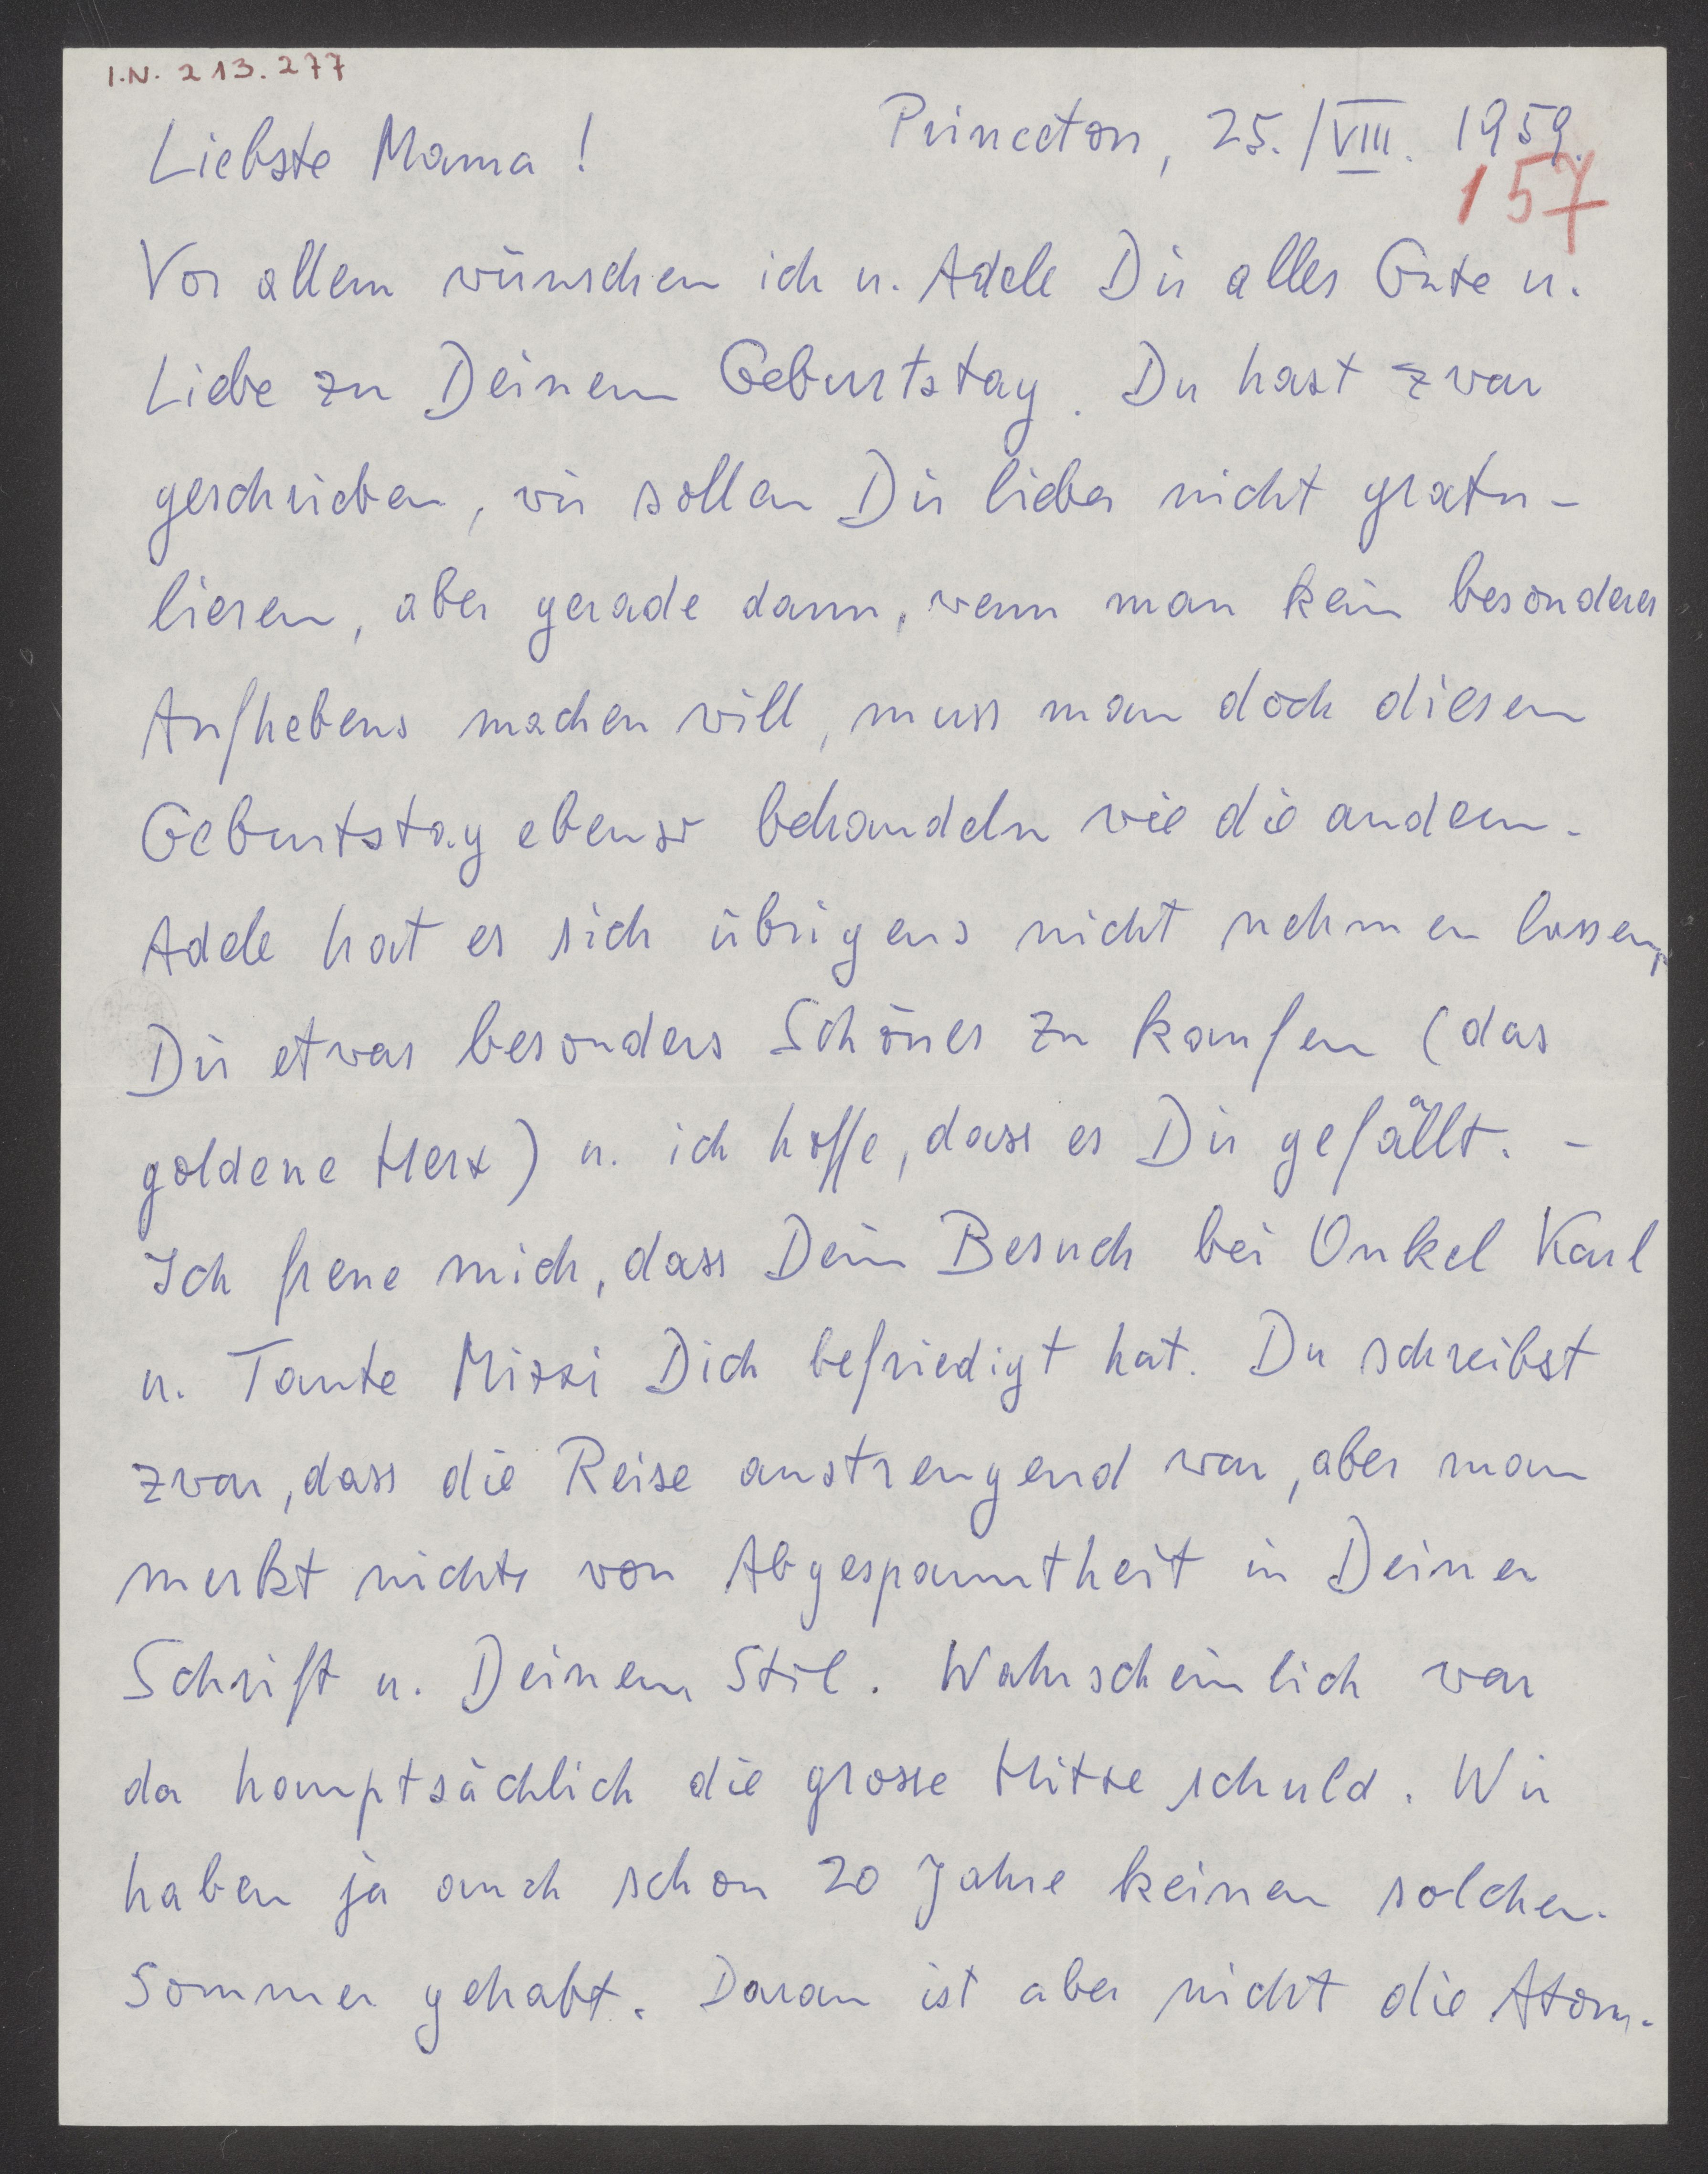 I.N. 213.277
Princeton, 25./VIII. 1959.
157
Liebste Mama!
Vor allem wünschen ich u. Adele Dir alles Gute u.
Liebe zu Deinem Geburtstag. Du hast zwar
geschrieben, wir sollen Dir lieber nicht gratu-
lieren, aber gerade dann, wenn man kein besonderes
Aufhebens machen will, muss man doch diesen
Geburtstag ebenso behandeln wie die andern.
Adele hat es sich übrigens nicht nehmen lassen,
Dir etwas besonders Schönes zu kaufen (das
goldene Herz) u. ich hoffe, dass es Dir gefällt. -
Ich freue mich, dass Dein Besuch bei Onkel Karl
u. Tante Mizzi Dich befriedigt hat. Du schreibst
zwar, dass die Reise anstrengend war, aber man
merkt nichts von Abgespanntheit in Deiner
Schrift u. Deinem Stil. Wahrscheinlich war
da hauptsächlich die grosse Hitze schuld. Wir
haben ja auch schon 20 Jahre keinen solchen
Sommer gehabt. Daran ist aber nicht die Atom-